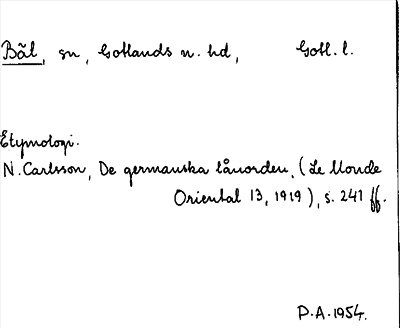 Bäl, sn, Gotlands n. hd, Gotl. l.
Etymologi.
N. Carlsson, De germanska lånorden, (Le Monde
Oriental 13, 1919), s. 241 ff.
P.A. 1954.